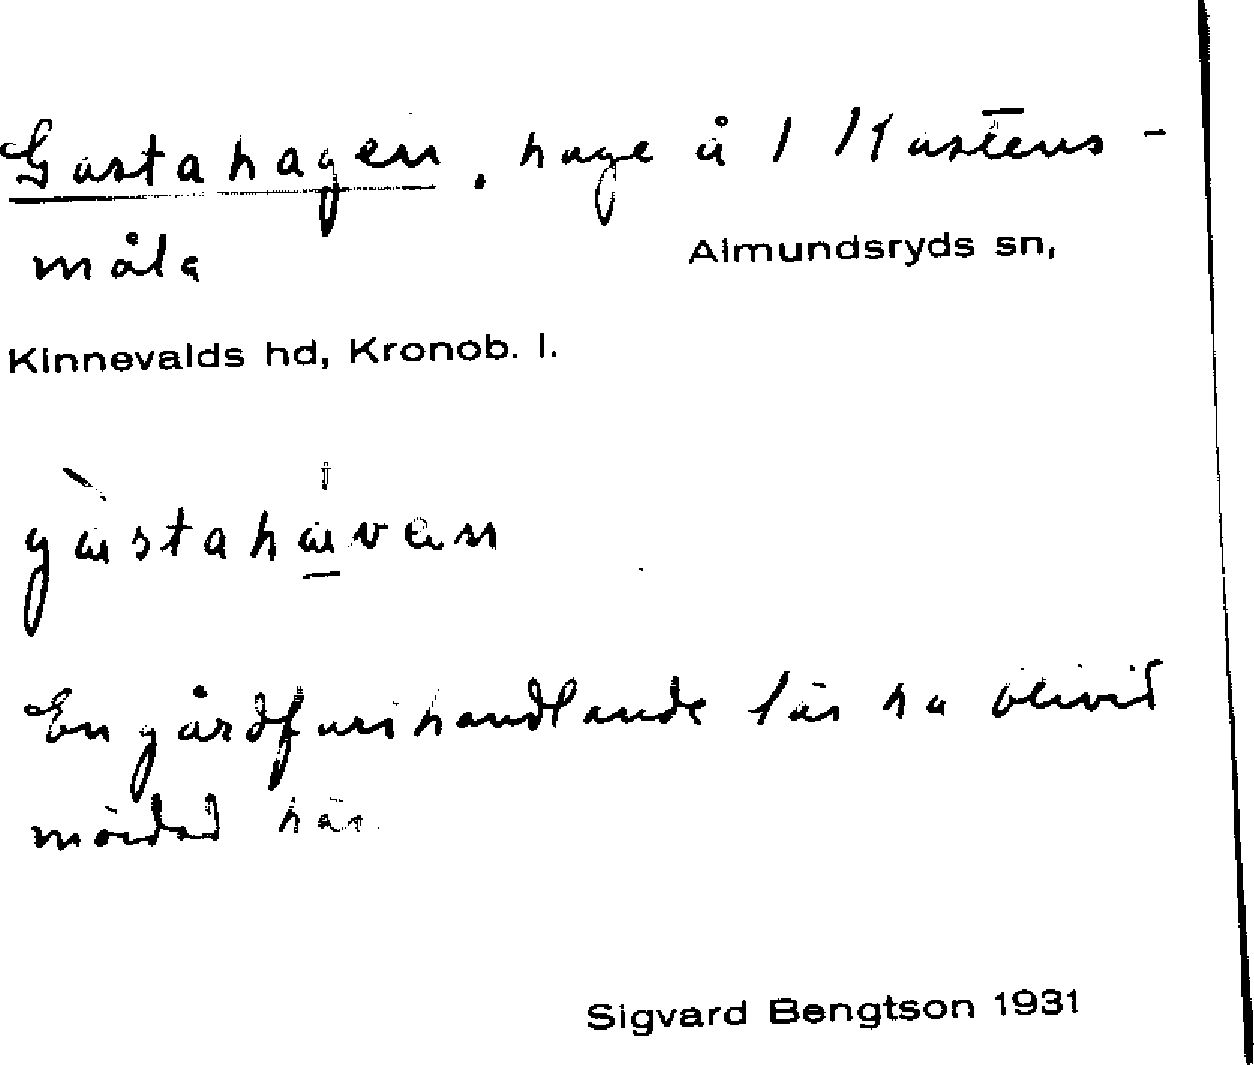 Gastahagen, hage å 1 Kastens-
måla Almundsryds sn,
Kinnevalds hd, Kronob. l.
gàstahavan
En gårdfarihandlande lär ha blivit
mördad här.
Sigvard Bengtson 1931